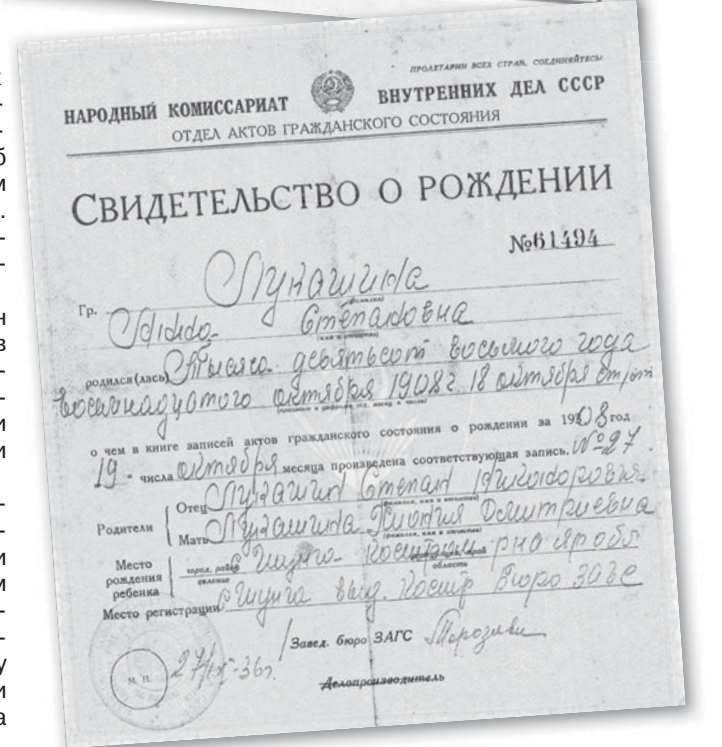 ПРОЛЕТАРИИ ВСЕХ СТРАН, СОЕДИНЯЙТЕСЬ
НАРОДНЫЙ КОМИССАРИАТ ВНУТРЕННИХ ДЕЛ СССР
ОТДЕЛ АКТОВ ГРАЖДАНСКОГО СОСТОЯНИЯ
СВИДЕТЕЛЬСТВО О РОЖДЕНИИ
№61494
Гр. Лукашина
(фамилия)
Степановна
(имя и отчество)
родился(лась) Тысяча девятьсот восьмого года
восемнадцатого октября 1908г 18 октября
о чем в книге записей актов гражданского состояния о рождении за 1908 год
19 - числа октября месяца произведена соответствующая запись. №27
Родители
Отец Лукашин Степан
(фамилия, имя и отчество)
Мать Лукашина Дмитриевна
(фамилия, имя и отчество)
Место рождения ребенка
город, селение с Шунга
область
Место регистрации с Шунга выд. Костр Бюро Загс
Завед. бюро ЗАГС
М. П. 27/IX-36г.
Делопроизводитель